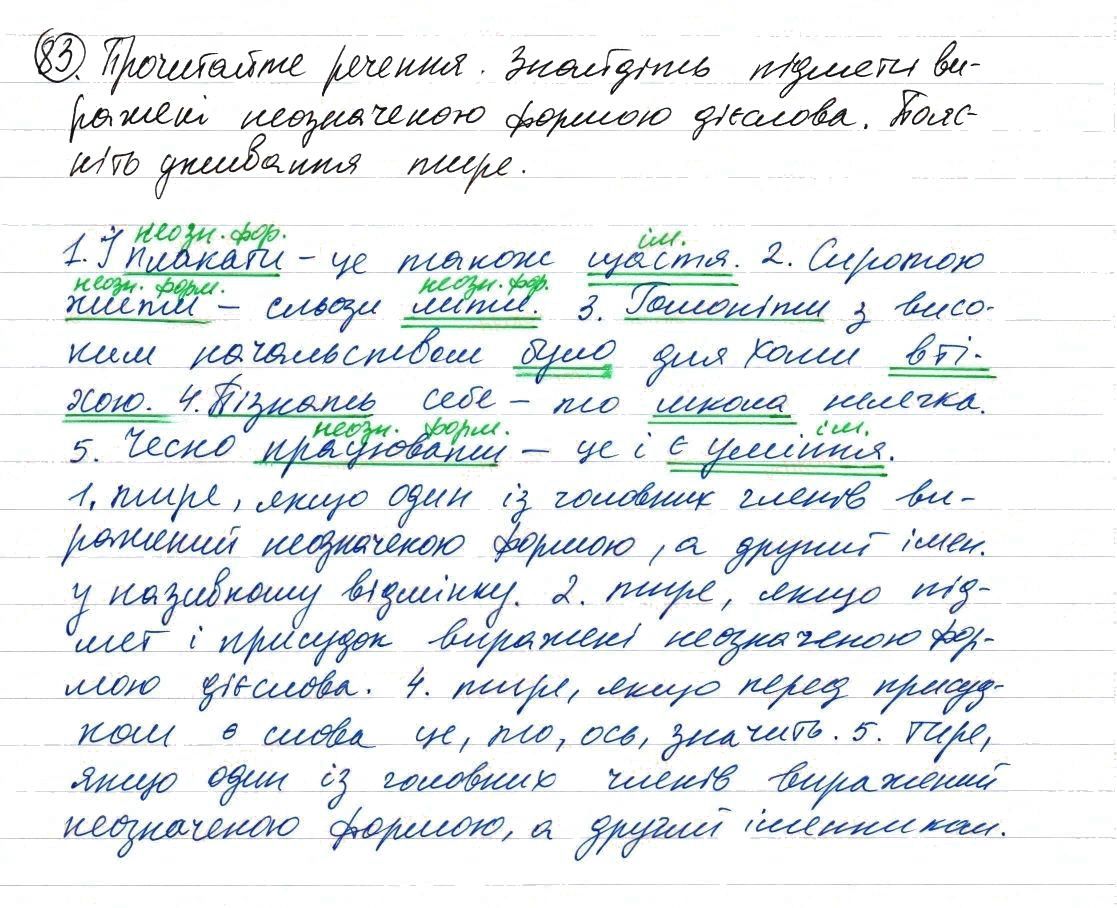 83. Прочитайте речення. Знайдіть підмети ви-
ражені неозначеною формою дієслова. Пояс-
ніть уживання тире.
неозн. фор. ім.
1. Й плакати – це також щастя. 2. Сиротою
неозн. форм. неозн. фор.
жити – сльози лити. 3. Гомоніти з висо-
ким начальством було для Хоми вті-
хою. 4. Пізнать себе – то школа нелегка.
неозн. форм. ім.
5. Чесно працювати – це і є уміння.
1. тире, якщо один із головних членів ви-
ражений неозначеною формою, а другий імен.
у називному відмінку. 2. тире, якщо під-
мет і присудок виражені неозначеною фор-
мою дієслова. 4. тире, якщо перед присуд-
ком є слова це, то, ось, значить. 5. Тире,
якщо один із головних членів виражений
неозначеною формою, а другий іменником.